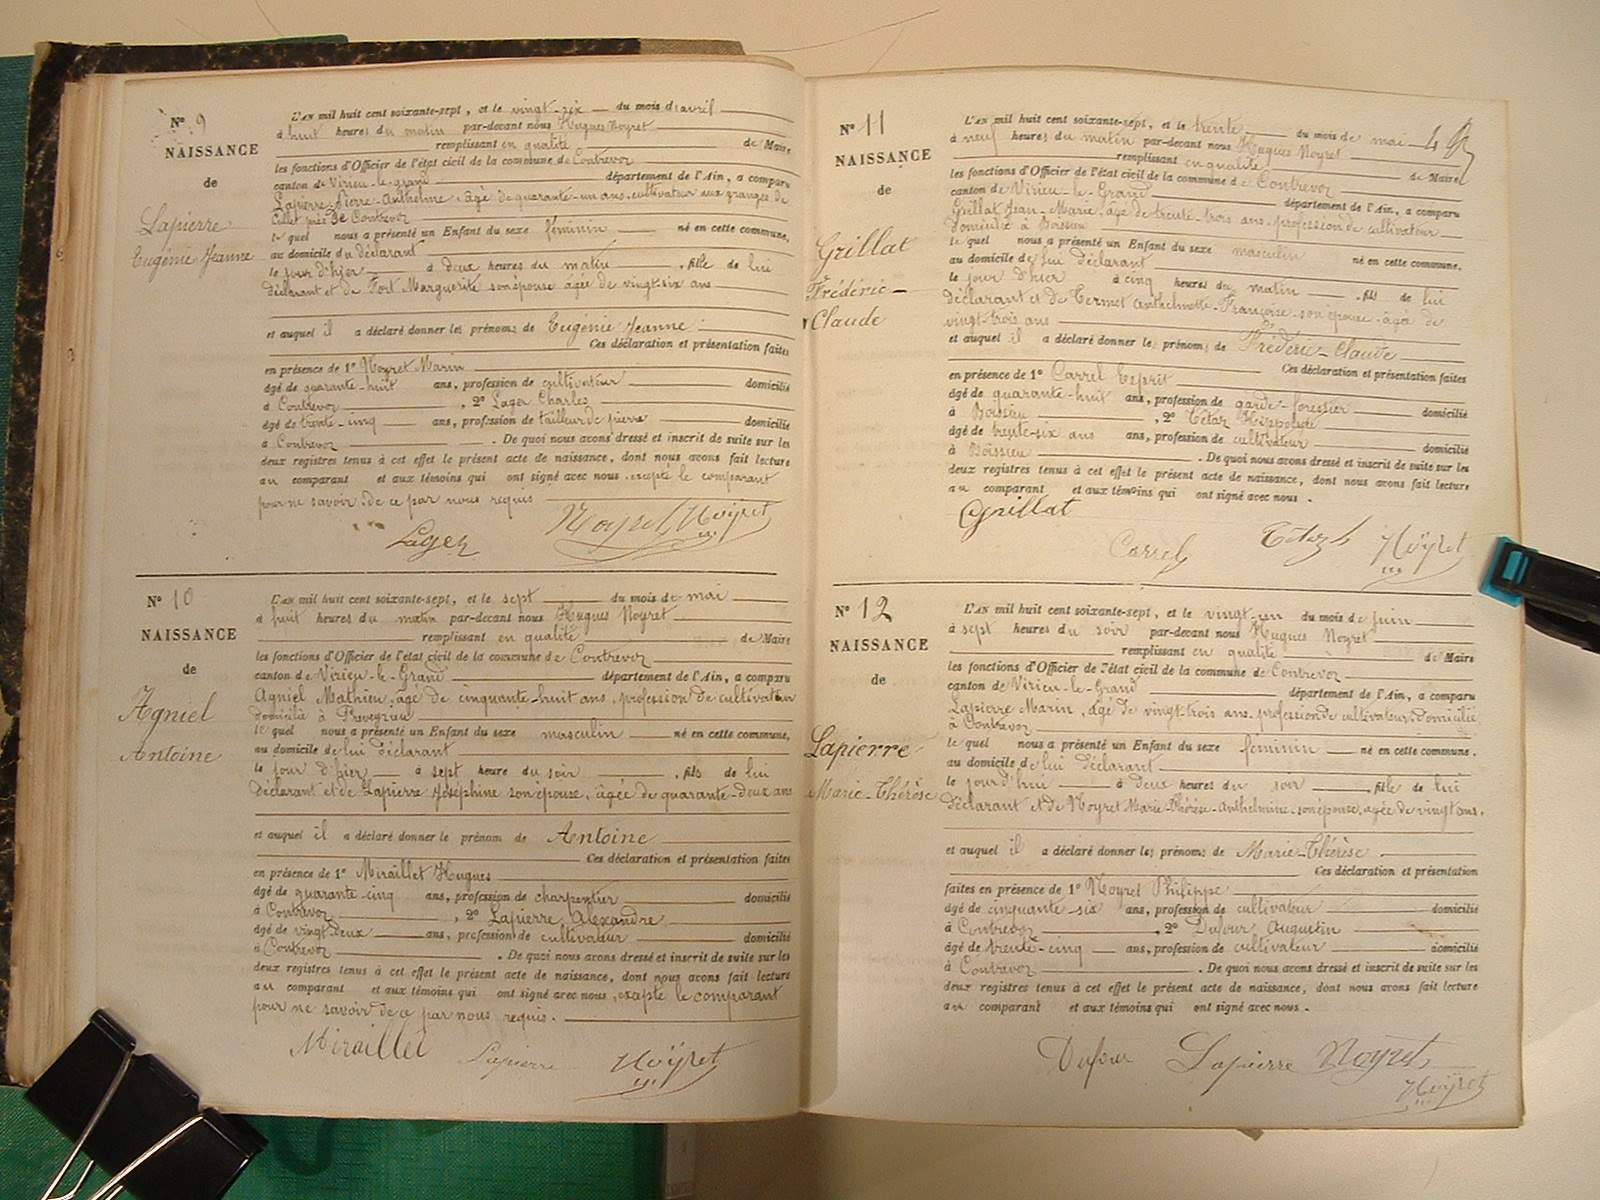 N° 9
NAISSANCE
de
Lapierre
Eugénie Jeanne
L'AN mil huit cent soixante-sept, et le vingt-six du mois d'avril
à huit heures du matin par-devant nous Hugues Noyret
remplissant en qualité de Maire
les fonctions d'Officier de l'état civil de la commune de Contrevoz
canton de Virieu-le-grand département de l'Ain, a comparu
Lapierre Pierre-Anthelme, âgé de quarante-un ans, cultivateur aux granges de
Cellet près de Contrevoz
lequel nous a présenté un Enfant du sexe féminin né en cette commune,
au domicile du déclarant
le jour d'hier à deux heures du matin, fille de lui
déclarant et de Fort Marguerite son épouse âgée de vingt-six ans
et auquel il a déclaré donner les prénoms de Eugénie Jeanne
Ces déclaration et présentation faites
en présence de 1° Noyret Marin
âgé de quarante-huit ans, profession de cultivateur domicilié
à Contrevoz, 2° Lager Charles
âgé de trente-cinq ans, profession de tailleur de pierre domicilié
à Contrevoz. De quoi nous avons dressé et inscrit de suite sur les
deux registres tenus à cet effet le présent acte de naissance, dont nous avons fait lecture
au comparant et aux témoins qui ont signé avec nous, excepté le comparant
pour ne savoir, de ce par nous requis
Lager Noyret Noÿret
N° 10
NAISSANCE
de
Agniel
Antoine
L'AN mil huit cent soixante-sept, et le sept du mois de mai
à huit heures du matin par-devant nous Hugues Noyret
remplissant en qualité de Maire
les fonctions d'Officier de l'état civil de la commune de Contrevoz
canton de Virieu-le-Grand département de l'Ain, a comparu
Agniel Mathieu, âgé de cinquante-huit ans, profession de cultivateur
domicilié à Preveyrieu
lequel nous a présenté un Enfant du sexe masculin né en cette commune,
au domicile de lui déclarant
le jour d'hier à sept heure du soir, fils de lui
déclarant et de Lapierre Joséphine son épouse, âgée de quarante-deux ans
et auquel il a déclaré donner le prénom de Antoine
Ces déclaration et présentation faites
en présence de 1° Miraillet Hugues
âgé de quarante-cinq ans, profession de charpentier domicilié
à Contrevoz, 2° Lapierre Alexandre
âgé de vingt-deux ans, profession de cultivateur domicilié
à Contrevoz. De quoi nous avons dressé et inscrit de suite sur les
deux registres tenus à cet effet le présent acte de naissance, dont nous avons fait lecture
au comparant et aux témoins qui ont signé avec nous, excepté le comparant
pour ne savoir de ce par nous requis.
Miraillet Lapierre Noÿret
N° 11
NAISSANCE
de
Grillat
Frédéric-
Claude
L'AN mil huit cent soixante-sept, et le trente du mois de mai
à neuf heures du matin par-devant nous Hugues Noyret
remplissant en qualité de Maire
les fonctions d'Officier de l'état civil de la commune de Contrevoz
canton de Virieu-le-Grand département de l'Ain, a comparu
Grillat Jean-Marie, âgé de trente-trois ans, profession de cultivateur
domicilié à Boissieu
lequel nous a présenté un Enfant du sexe masculin né en cette commune,
au domicile de lui déclarant
le jour d'hier à cinq heures du matin, fils de lui
déclarant et de Termet Anthelmette-Françoise son épouse âgée de
vingt-trois ans
et auquel il a déclaré donner les prénoms de Frédéric-Claude
Ces déclaration et présentation faites
en présence de 1° Carrel Esprit
âgé de quarante-huit ans, profession de garde-forestier domicilié
à Boissieu, 2° Tétaz Hippolyte
âgé de trente-six ans ans, profession de cultivateur domicilié
à Boissieu. De quoi nous avons dressé et inscrit de suite sur les
deux registres tenus à cet effet le présent acte de naissance, dont nous avons fait lecture
au comparant et aux témoins qui ont signé avec nous.
Grillat
Carrel Tétaz h Noÿret
N° 12
NAISSANCE
de
Lapierre
Marie-Thérèse
L'AN mil huit cent soixante-sept, et le vingt-un du mois de juin
à sept heures du soir par-devant nous Hugues Noyret
remplissant en qualité de Maire
les fonctions d'Officier de l'état civil de la commune de Contrevoz
canton de Virieu-le-Grand département de l'Ain, a comparu
Lapierre Marin, âgé de vingt-trois ans, profession de cultivateur, domicilié
à Contrevoz
lequel nous a présenté un Enfant du sexe féminin né en cette commune.
au domicile de lui déclarant
le jour d'hui à deux heures du soir, fille de lui
déclarant et de Noyret Marie-Thérèse-Anthelmine, son épouse, âgée de vingt ans.
et auquel il a déclaré donner les prénoms de Marie-Thérèse
Ces déclaration et présentation
faites en présence de 1° Noyret Philippe
âgé de cinquante-six ans, profession de cultivateur domicilié
à Contrevoz, 2° Dufour Augustin
âgé de trente-cinq ans, profession de cultivateur domicilié
à Contrevoz. De quoi nous avons dressé et inscrit de suite sur les
deux registres tenus à cet effet le présent acte de naissance, dont nous avons fait lecture
au comparant et aux témoins qui ont signé avec nous.
Dufour Lapierre Noyret
Noÿret